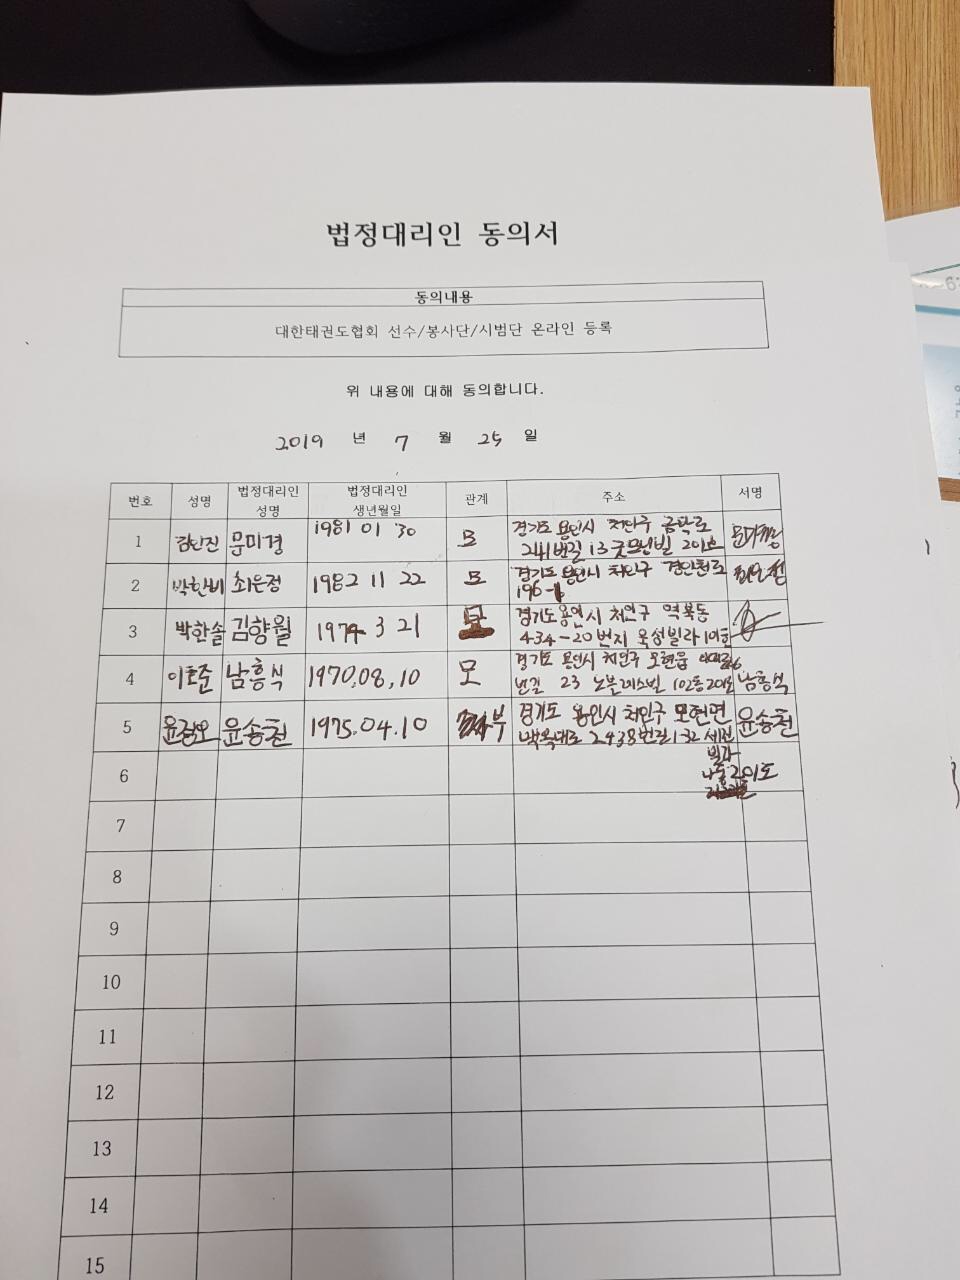 법정대리인 동의서
동의내용
대한태권도협회 선수/봉사단/시범단 온라인 등록
위 내용에 대해 동의합니다.
2019 년 7 월 25 일
번호 성명 법정대리인 성명 법정대리인 생년월일 관계 주소 서명
1 김민진 문미경 1981 01 30 모 경기도 용인시 처인구 금학로
241번길 13 굿모닝빌 201호
2 박한비 최은정 1982 11 22 모 경기도 용인시 처인구 경안천로
196-
3 박한솔 김향월 1974 3 21 모 경기도 용인시 처인구 역북동
434-20번지 옥성빌라 101호
4 이호준 남흥식 1970.08.10 모 경기도 용인시 처인구 모현읍
번길 23 노블레스빌 102동 201호 남흥식
5 윤송철 1975.04.10 부 경기도 용인시 처인구 모현면 윤송철
백옥대로 2438번길 1-32 세진
빌라
나동 201호
6
7
8
9
10
11
12
13
14
15